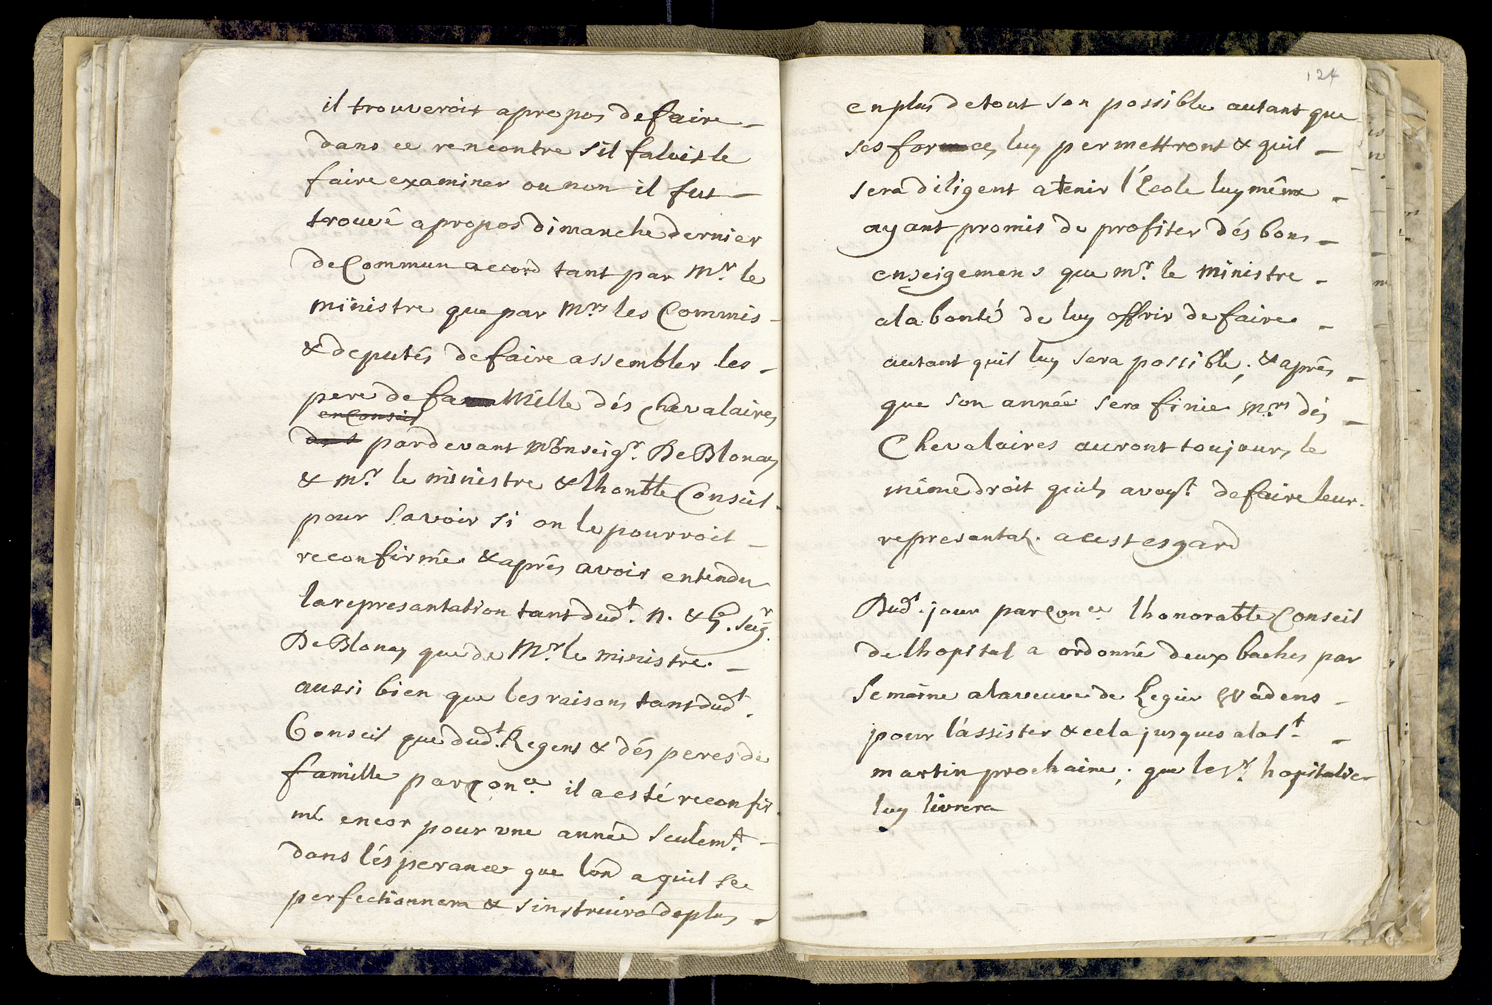 il trouveroit apropos de faire
dans ce rencontre s'il faloit le
faire examiner ou non il fut
trouvé apropos dimanche dernier
de Commun accord tant par Mr. le
ministre que par Mrs les Commis
& deputés de faire assembler les
pere de famille dés Chevalaires
en Conseil
pardevant Monseigr. De Blonay
& mr. le ministre & lhonble Conseil
pour savoir si on le pourroit
reconfirmée & aprés avoir entendu
la represantation tant dudt. N. & G. Seigr.
De Blonay que de Mr. le ministre.
aussi bien que les raisons tant dudt.
Conseil que dudt. Regent & dés peres de
famille par conce il a esté reconfir
mé encor pour une année seulemt.
dans lésperance que lon a quil se
perfectionnera & sinstruira deplus
124
en plus de tout son possible autant que
ses forces luy permettront & quil
sera diligent a tenir l'Ecole luy même
ayant promis de profiter dés bons
enseigemens que mr. le ministre
a la bonté de luy offrir de faire
autant quil luy sera possible, & aprés
que son année sera finie mrs dés
Chevalaires auront toujours le
même droit quils avoyt. de faire leur
represantat. a cest esgard
Dudt. jour par conce lhonorable Conseil
de lhopital a ordonné deux baches par
semaine a la veuve de Legier Wadens
pour l'assister & cela jusques a la st.
martin prochaine, que le sr. hopitalier
luy livrera